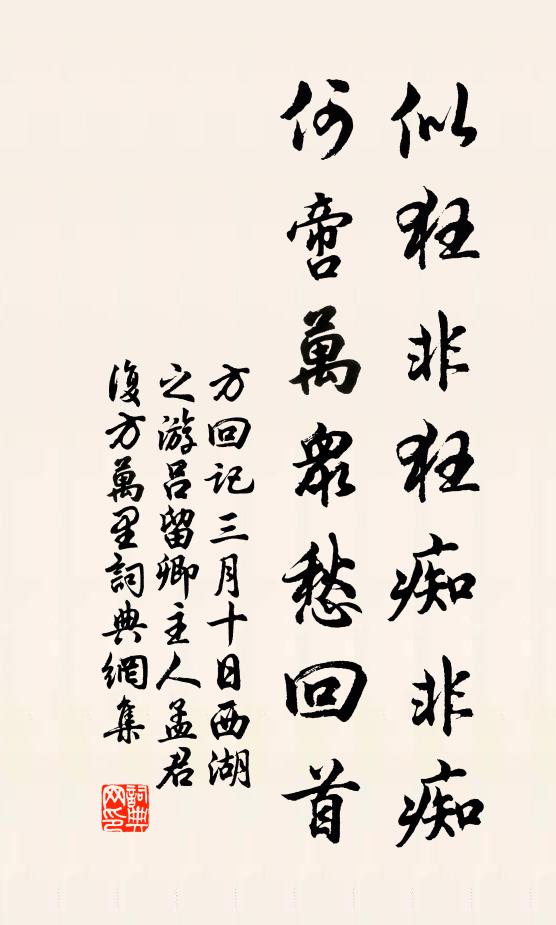 似狂非狂痴非痴
何啻萬衆愁回首
方回記三月十日西湖
之游呂留卿主人孟君
復方萬里詞典網集
詞典
网印